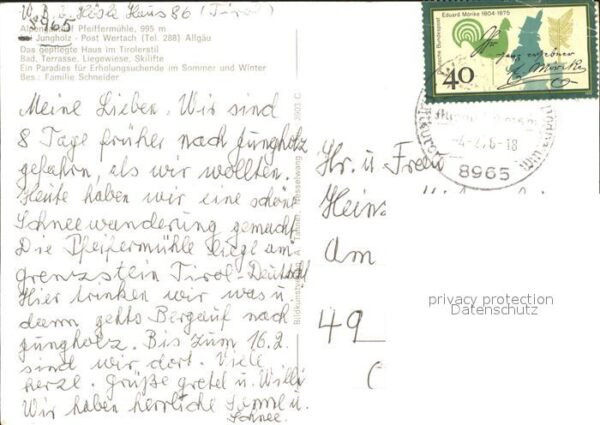 Haus 86 (Tirol)
8965
Pfeiffermühle, 995 m
Jungholz - Post Wertach (Tel. 288) Allgäu
Das gepflegte Haus im Tirolerstil
Bad, Terrasse, Liegewiese, Skilifte
Ein Paradies für Erholungsuchende im Sommer und Winter
Bes.: Familie Schneider
Meine Lieben. Wir sind
8 Tage früher nach Jungholz
gefahren, als wir wollten.
Heute haben wir eine schöne
Schneewanderung gemacht
Die Pfeifermühle liegt am
grenzstein Tirol-Deutschl
Hier trinken wir was u.
dann gehts Bergauf nach
Jungholz. Bis zum 16.2.
sind wir dort. Viele
herzl. Grüße gretel u. Willi
Wir haben herrliche Sonne u.
Schnee.
Nesselwang 3903 C
Eduard Mörike 1804-1875
Deutsche Bundespost
40
8965
Hr. u Frau
Heinz
Am
49
privacy protection
Datenschutz